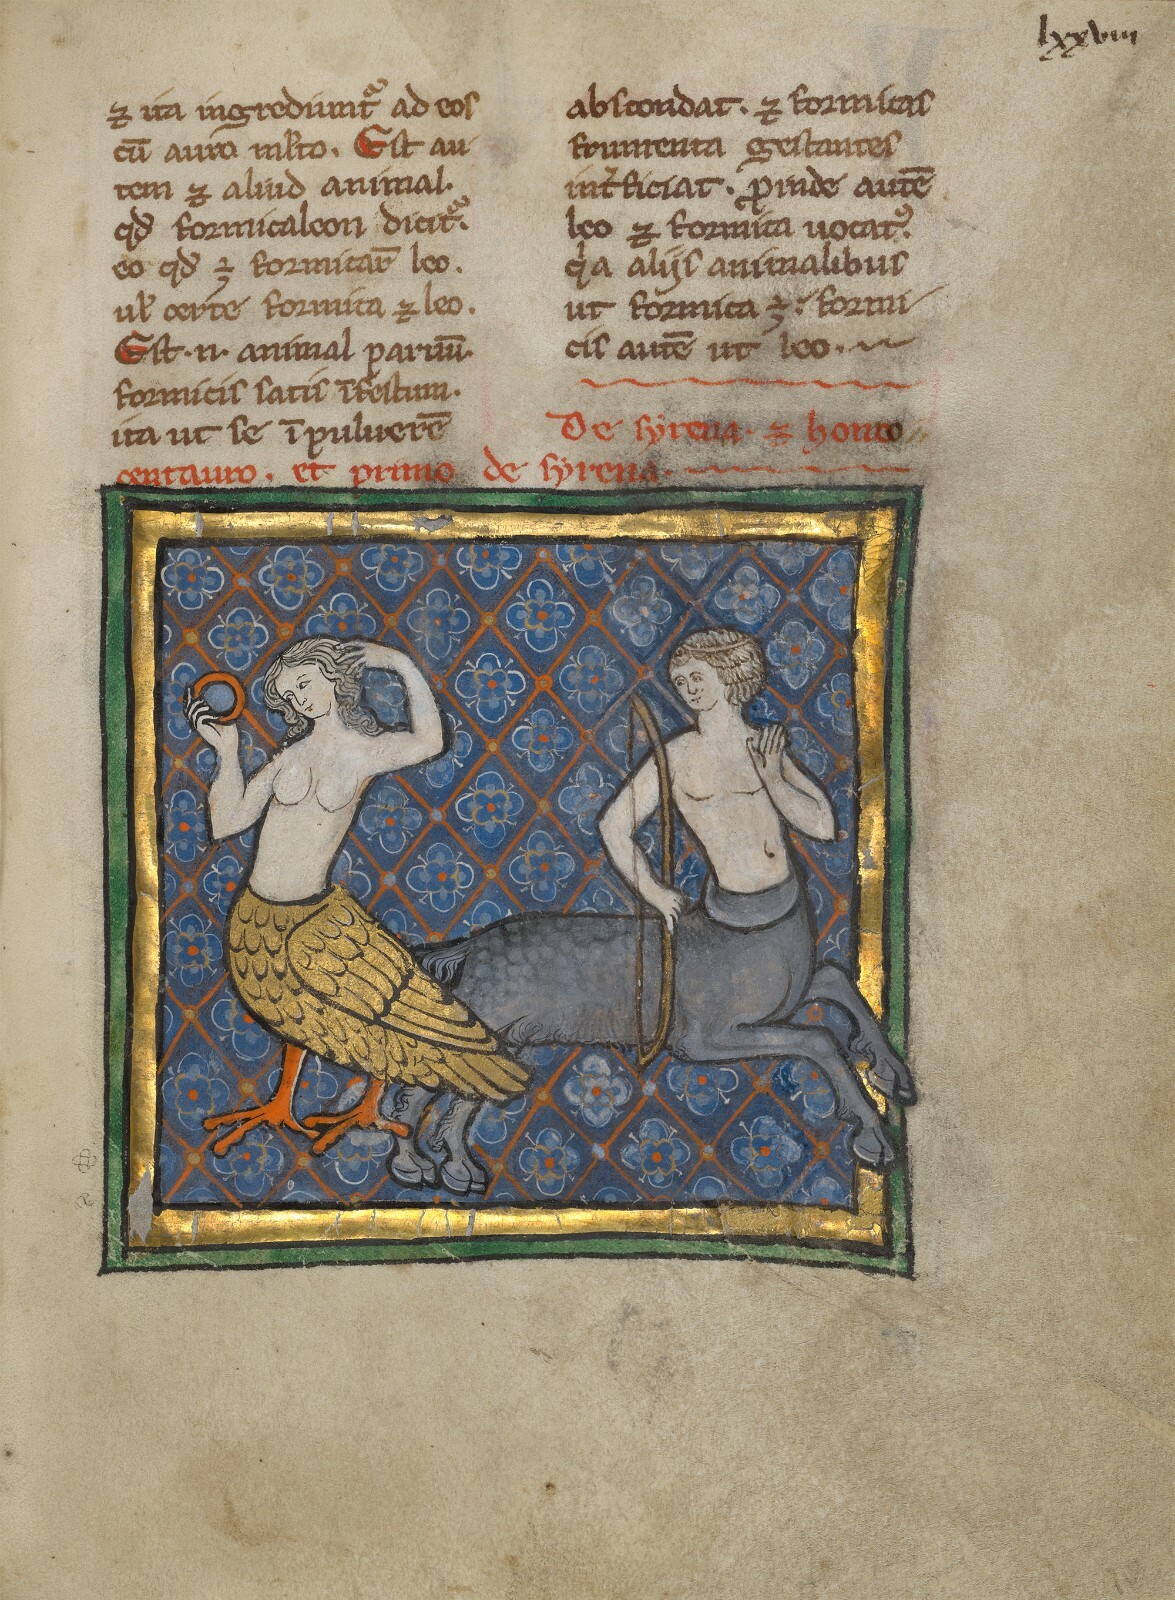 lxxviii
⁊ ita ingrediunt᷑ ad eos
cū auro mlto. Est au
tem ⁊ aliud animal.
qd formicaleon dicit᷑.
eo qd formicaꝝ leo.
ul certe formica ⁊ leo.
Est .n. animal paruū.
formicis satis īfestum.
ita ut se ī puluerē
abscondat. ⁊ formicas
frumenta gestantes
int̄ficiat. proinde autē
leo ⁊ formica uocat᷑.
qa alijs animalibus
ut formica ÷. formi
cis autē ut leo.
De syrena. ⁊ hono
centauro. et primo de syrena.